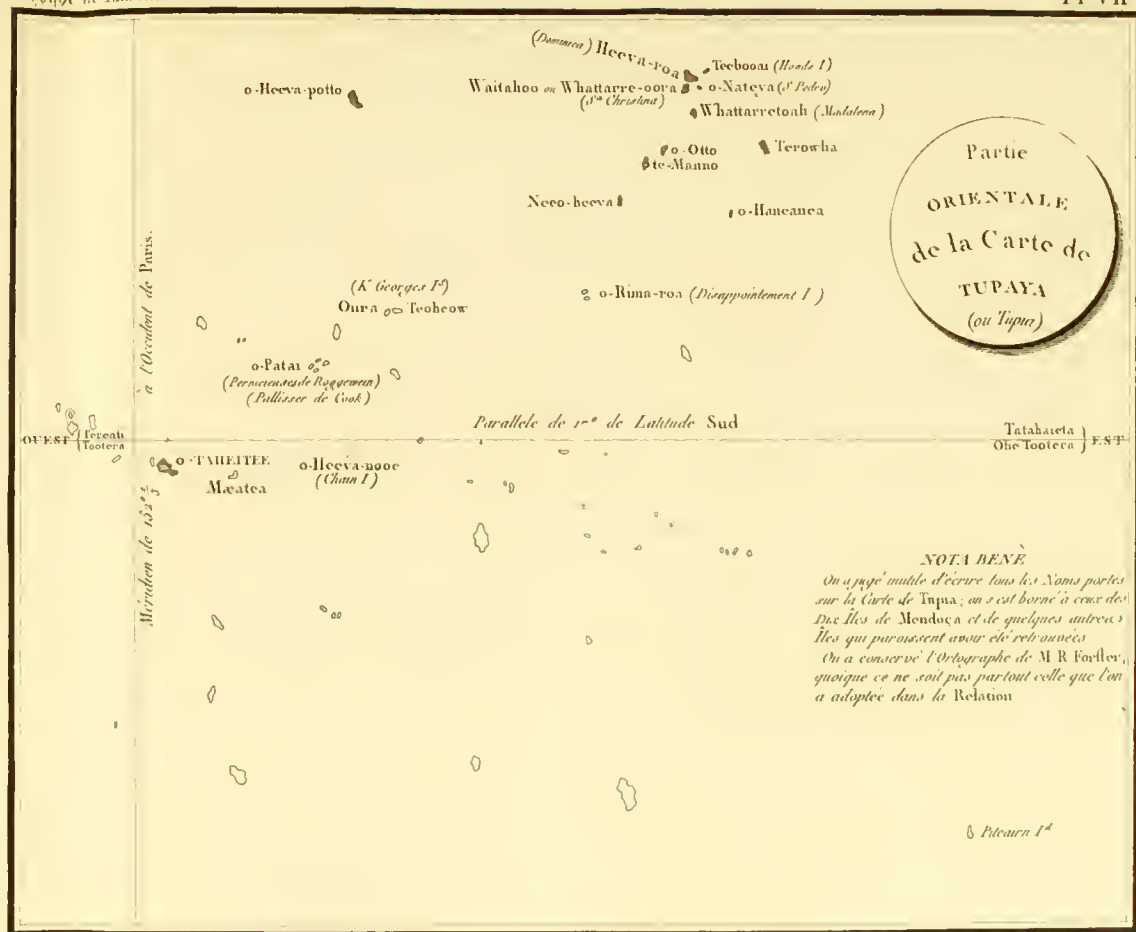 Pl VII
(Dominica) Heeva-roa
Teebooai (Hoods I)
o-Heeva-potto
Waitahoo ou Whattarre-oora
(Sta Christina)
o-Nateya (St Pedro)
Whattarretoah (Madalena)
o-Otto
te-Manno
Terowha
Neeo-heeva
o-Haneanea
Partie
ORIENTALE
de la Carte de
TUPAYA
(ou Tupia)
(K. Georges Ids)
Oura
Teoheow
o-Rima-roa (Disappointement I)
o-Patai
(Pernicieuses de Roggewein)
(Pallisser de Cook)
Méridien de 152° ⅓ à l'Occident de Paris.
Parallele de 17° de Latitude Sud
OUEST
Tootera
Tatahaieta
Ohe Tootera
EST
o-TAHEITEE
Mæatea
o-Heeva-nooe
(Chain I)
NOTA BENÈ
On a jugé inutile d'écrire tous les Noms portés
sur la Carte de Tupia; on s'est borné à ceux des
Dix Îles de Mendoça et de quelques autres
Îles qui paroissent avoir été retrouvées
On a conservé l'Ortographe de M R Forster,
quoique ce ne soit pas partout celle que l'on
a adoptée dans la Relation
Pitcairn Id